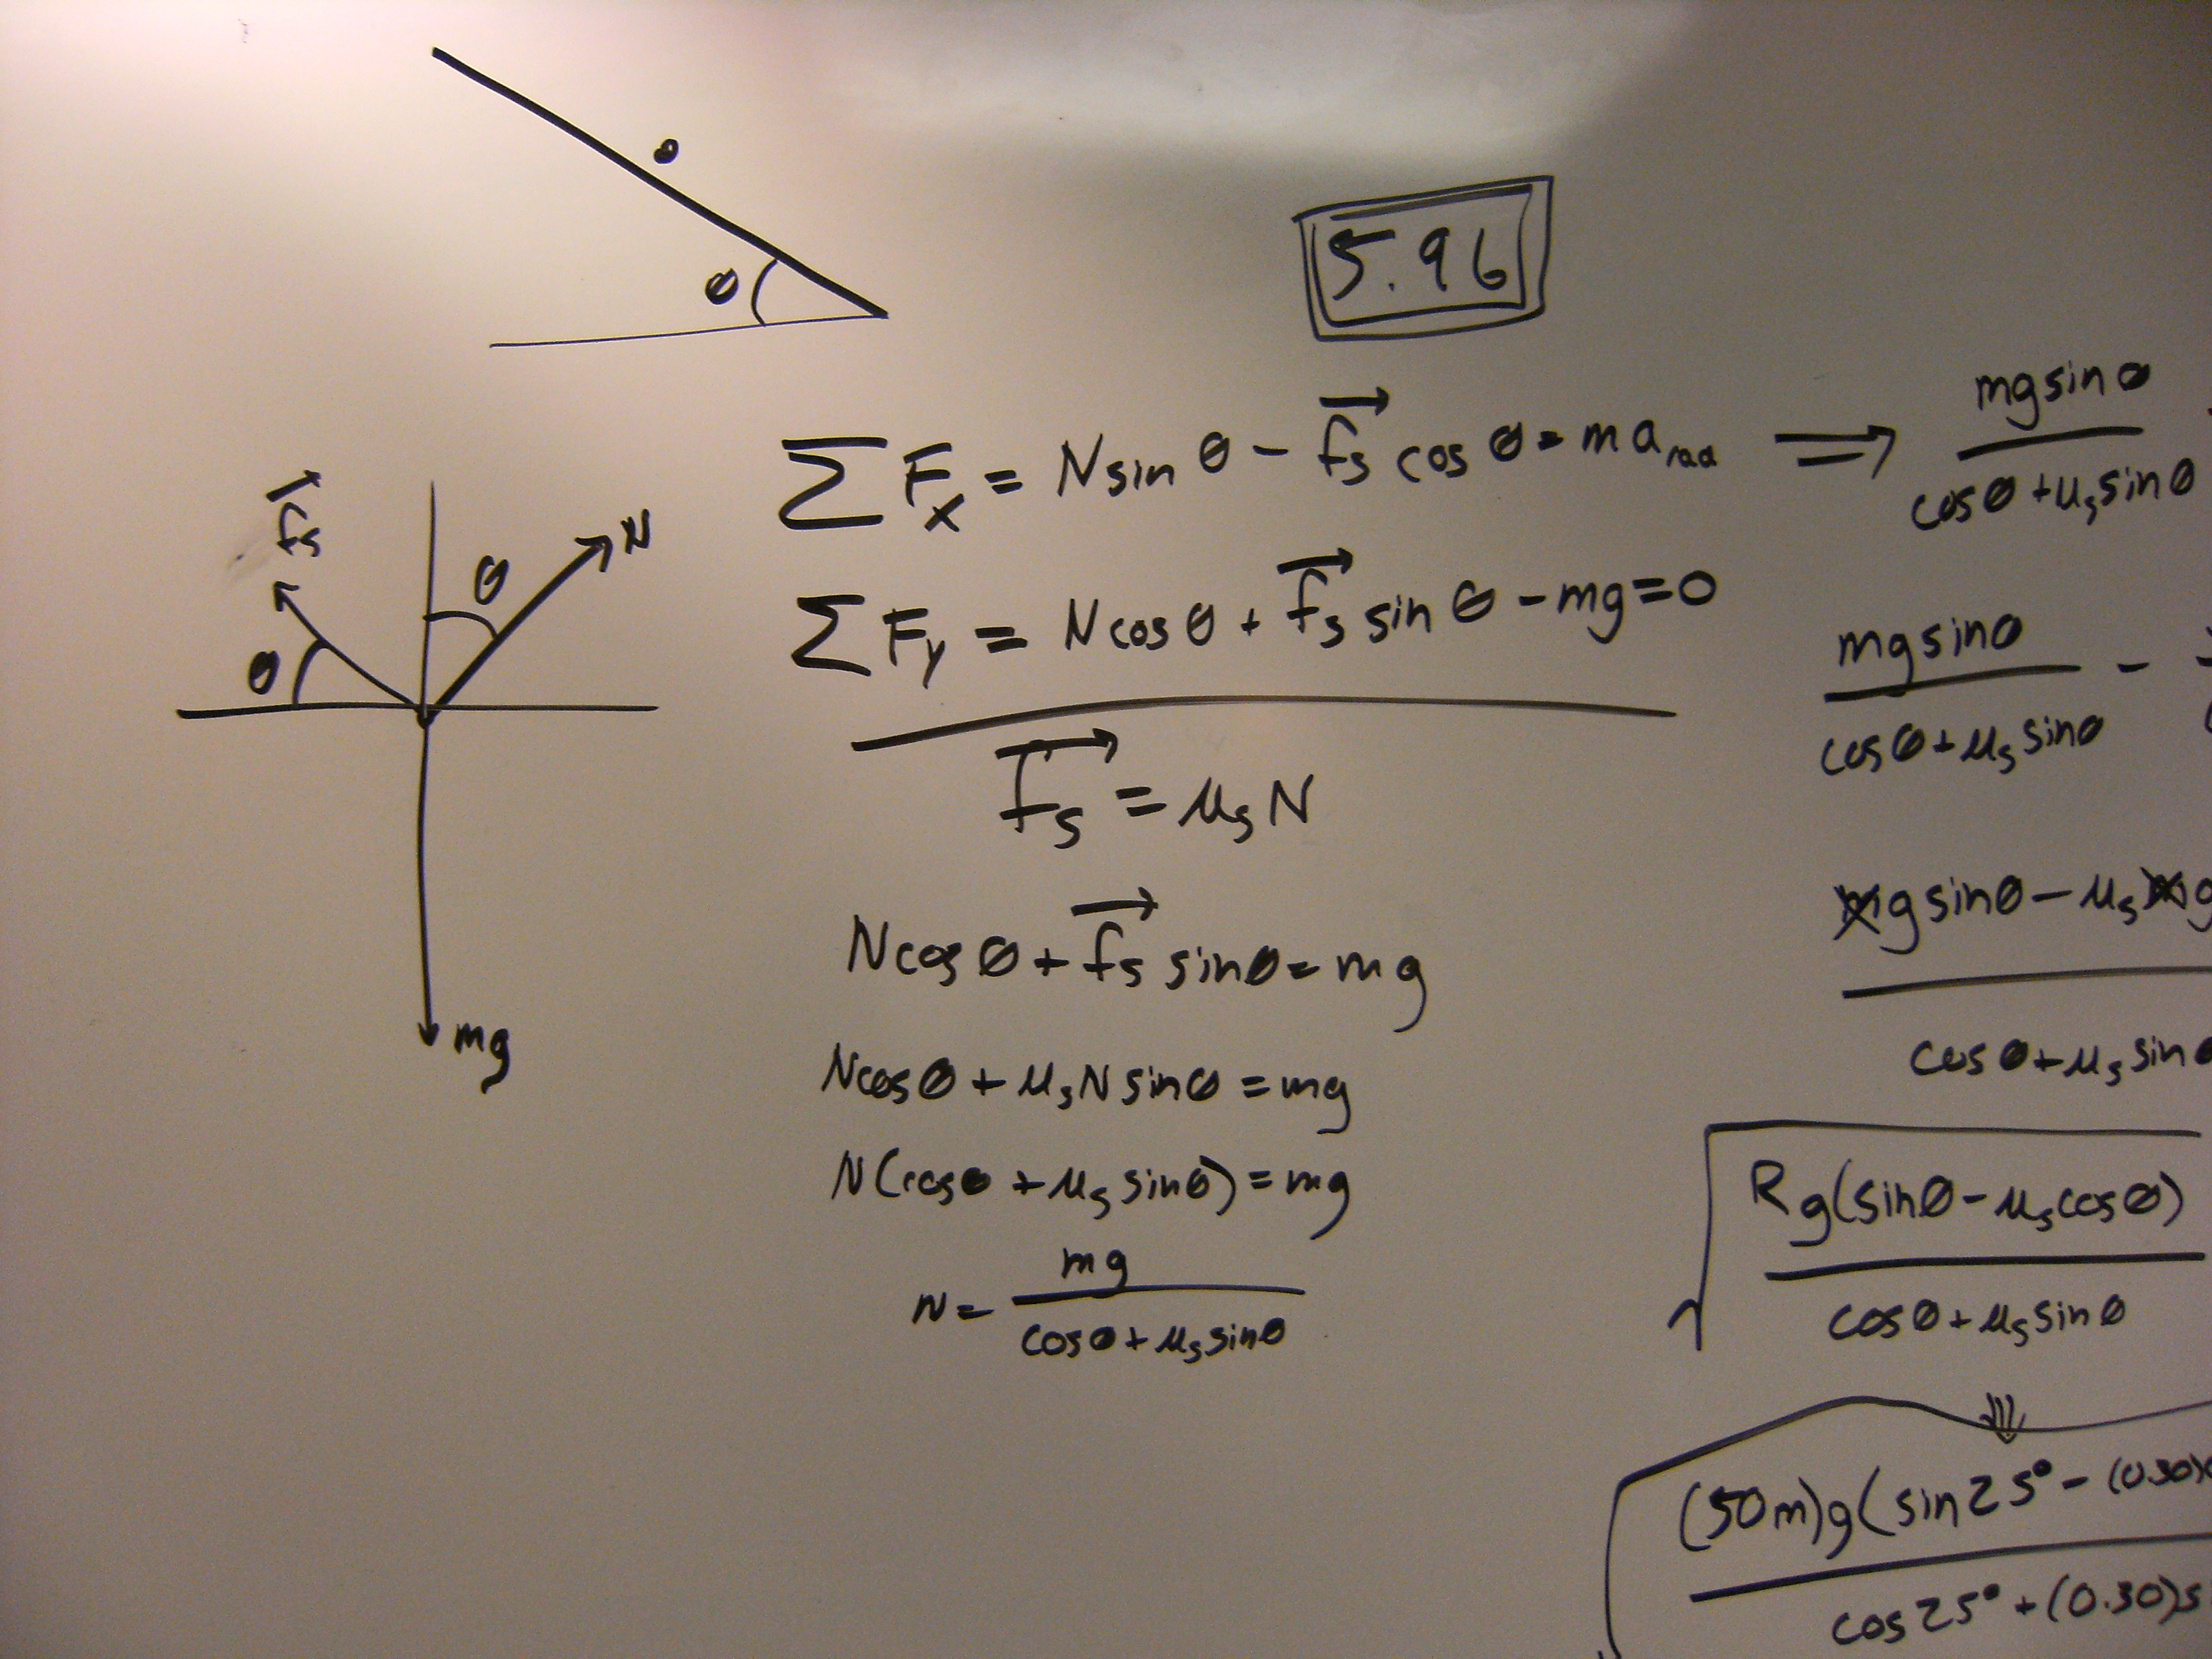 θ
5.96
f⃗s
θ
N
θ
mg
∑ Fx = N sin θ - f⃗s cos θ = m a rad ⟹ mg sin θ / cos θ + μs sin θ
∑ Fy = N cos θ + f⃗s sin θ - mg = 0
f⃗s = μs N
N cos θ + f⃗s sin θ = mg
N cos θ + μs N sin θ = mg
N (cos θ + μs sin θ) = mg
N = mg / cos θ + μs sin θ
mg sin θ / cos θ + μs sin θ -
mg sin θ - μs mg / cos θ + μs sin θ
√ Rg (sin θ - μs cos θ) / cos θ + μs sin θ
√ (50m)g (sin 25° - (0.30) / cos 25° + (0.30) s